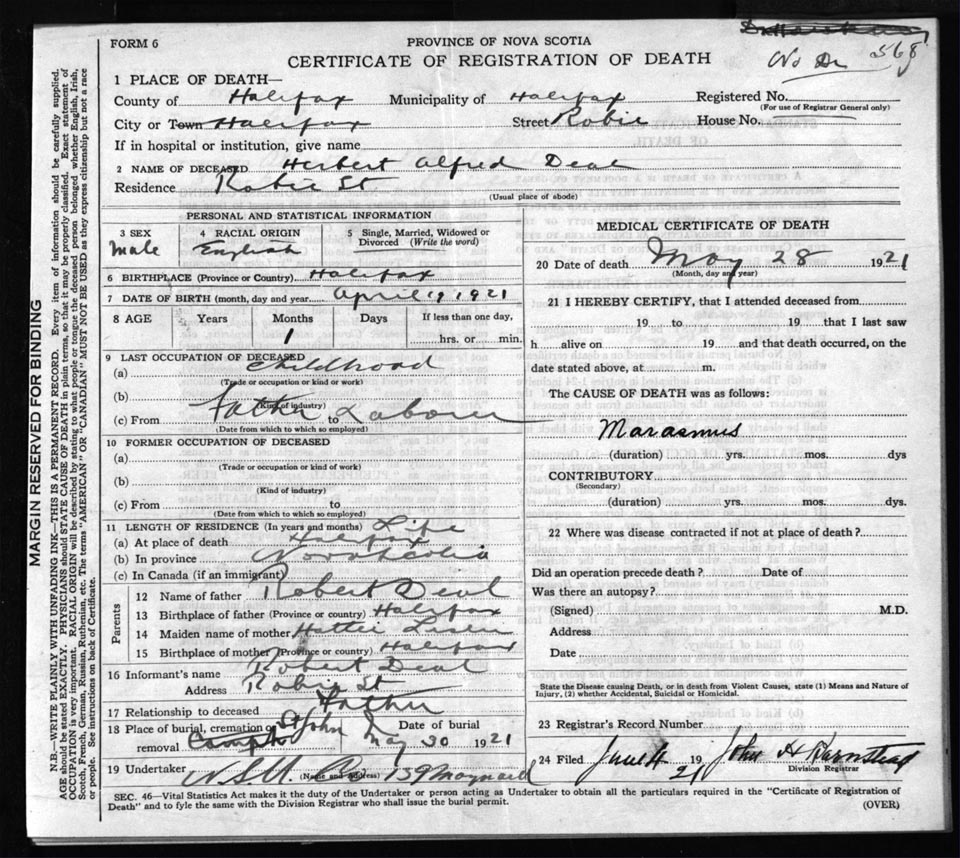 FORM 6
PROVINCE OF NOVA SCOTIA
CERTIFICATE OF REGISTRATION OF DEATH
No Dr 568
1 PLACE OF DEATH—
County of Halifax Municipality of Halifax Registered No.
(For use of Registrar General only)
City or Town Halifax Street Robie House No.
If in hospital or institution, give name
2 NAME OF DECEASED Herbert Alfred Deal
Residence Robie St
(Usual place of abode)
PERSONAL AND STATISTICAL INFORMATION
3 SEX 4 RACIAL ORIGIN 5 Single, Married, Widowed or Divorced (Write the word)
Male English
6 BIRTHPLACE (Province or Country) Halifax
7 DATE OF BIRTH (month, day and year) April 19 1921
8 AGE Years Months Days If less than one day,
1 hrs. or min.
9 LAST OCCUPATION OF DECEASED
(a) Childhood
(Trade or occupation or kind or work)
(b)
(Kind of industry)
(c) From Father to Laborer
(Date from which to which so employed)
10 FORMER OCCUPATION OF DECEASED
(a)
(Trade or occupation or kind of work)
(b)
(Kind of industry)
(c) From to
(Date from which to which so employed)
11 LENGTH OF RESIDENCE (In years and months) Life
(a) At place of death Halifax
(b) In province Nova Scotia
(c) In Canada (if an immigrant)
Parents
12 Name of father Robert Deal
13 Birthplace of father (Province or country) Halifax
14 Maiden name of mother Hattie
15 Birthplace of mother (Province or country) Halifax
16 Informant's name Robert Deal
Address Robie St
17 Relationship to deceased Father
18 Place of burial, cremation or removal St John Date of burial May 30 1921
19 Undertaker N.S.U. Co 159 Maynard
(Name and address)
MEDICAL CERTIFICATE OF DEATH
20 Date of death May 28 1921
(Month, day and year)
21 I HEREBY CERTIFY, that I attended deceased from
19 to 19 that I last saw
h alive on 19 and that death occurred, on the
date stated above, at m.
The CAUSE OF DEATH was as follows:
Marasmus
(duration) yrs. mos. dys
CONTRIBUTORY
(Secondary)
(duration) yrs. mos. dys.
22 Where was disease contracted if not at place of death?
Did an operation precede death? Date of
Was there an autopsy?
(Signed) M.D.
Address
Date
State the Disease causing Death, or in death from Violent Causes, state (1) Means and Nature of
Injury, (2) whether Accidental, Suicidal or Homicidal.
23 Registrar's Record Number
24 Filed June 4 1921 John H Barnstead
Division Registrar
SEC. 46—Vital Statistics Act makes it the duty of the Undertaker or person acting as Undertaker to obtain all the particulars required in the "Certificate of Registration of
Death" and to fyle the same with the Division Registrar who shall issue the burial permit.
(OVER)
MARGIN RESERVED FOR BINDING
N.B.—WRITE PLAINLY WITH UNFADING INK—THIS IS A PERMANENT RECORD. Every item of information should be carefully supplied.
AGE should be stated EXACTLY. PHYSICIANS should STATE CAUSE OF DEATH in plain terms, so that it may be properly classified. Exact statement of
OCCUPATION is very important. RACIAL ORIGIN will be described by stating to what people or tongue the deceased person belonged whether English, Irish,
Scotch, French, German, Russian, Ruthenian, etc. The terms "AMERICAN" OR "CANADIAN" MUST NOT BE USED as they express citizenship but not a race
or people. See instructions on back of Certificate.